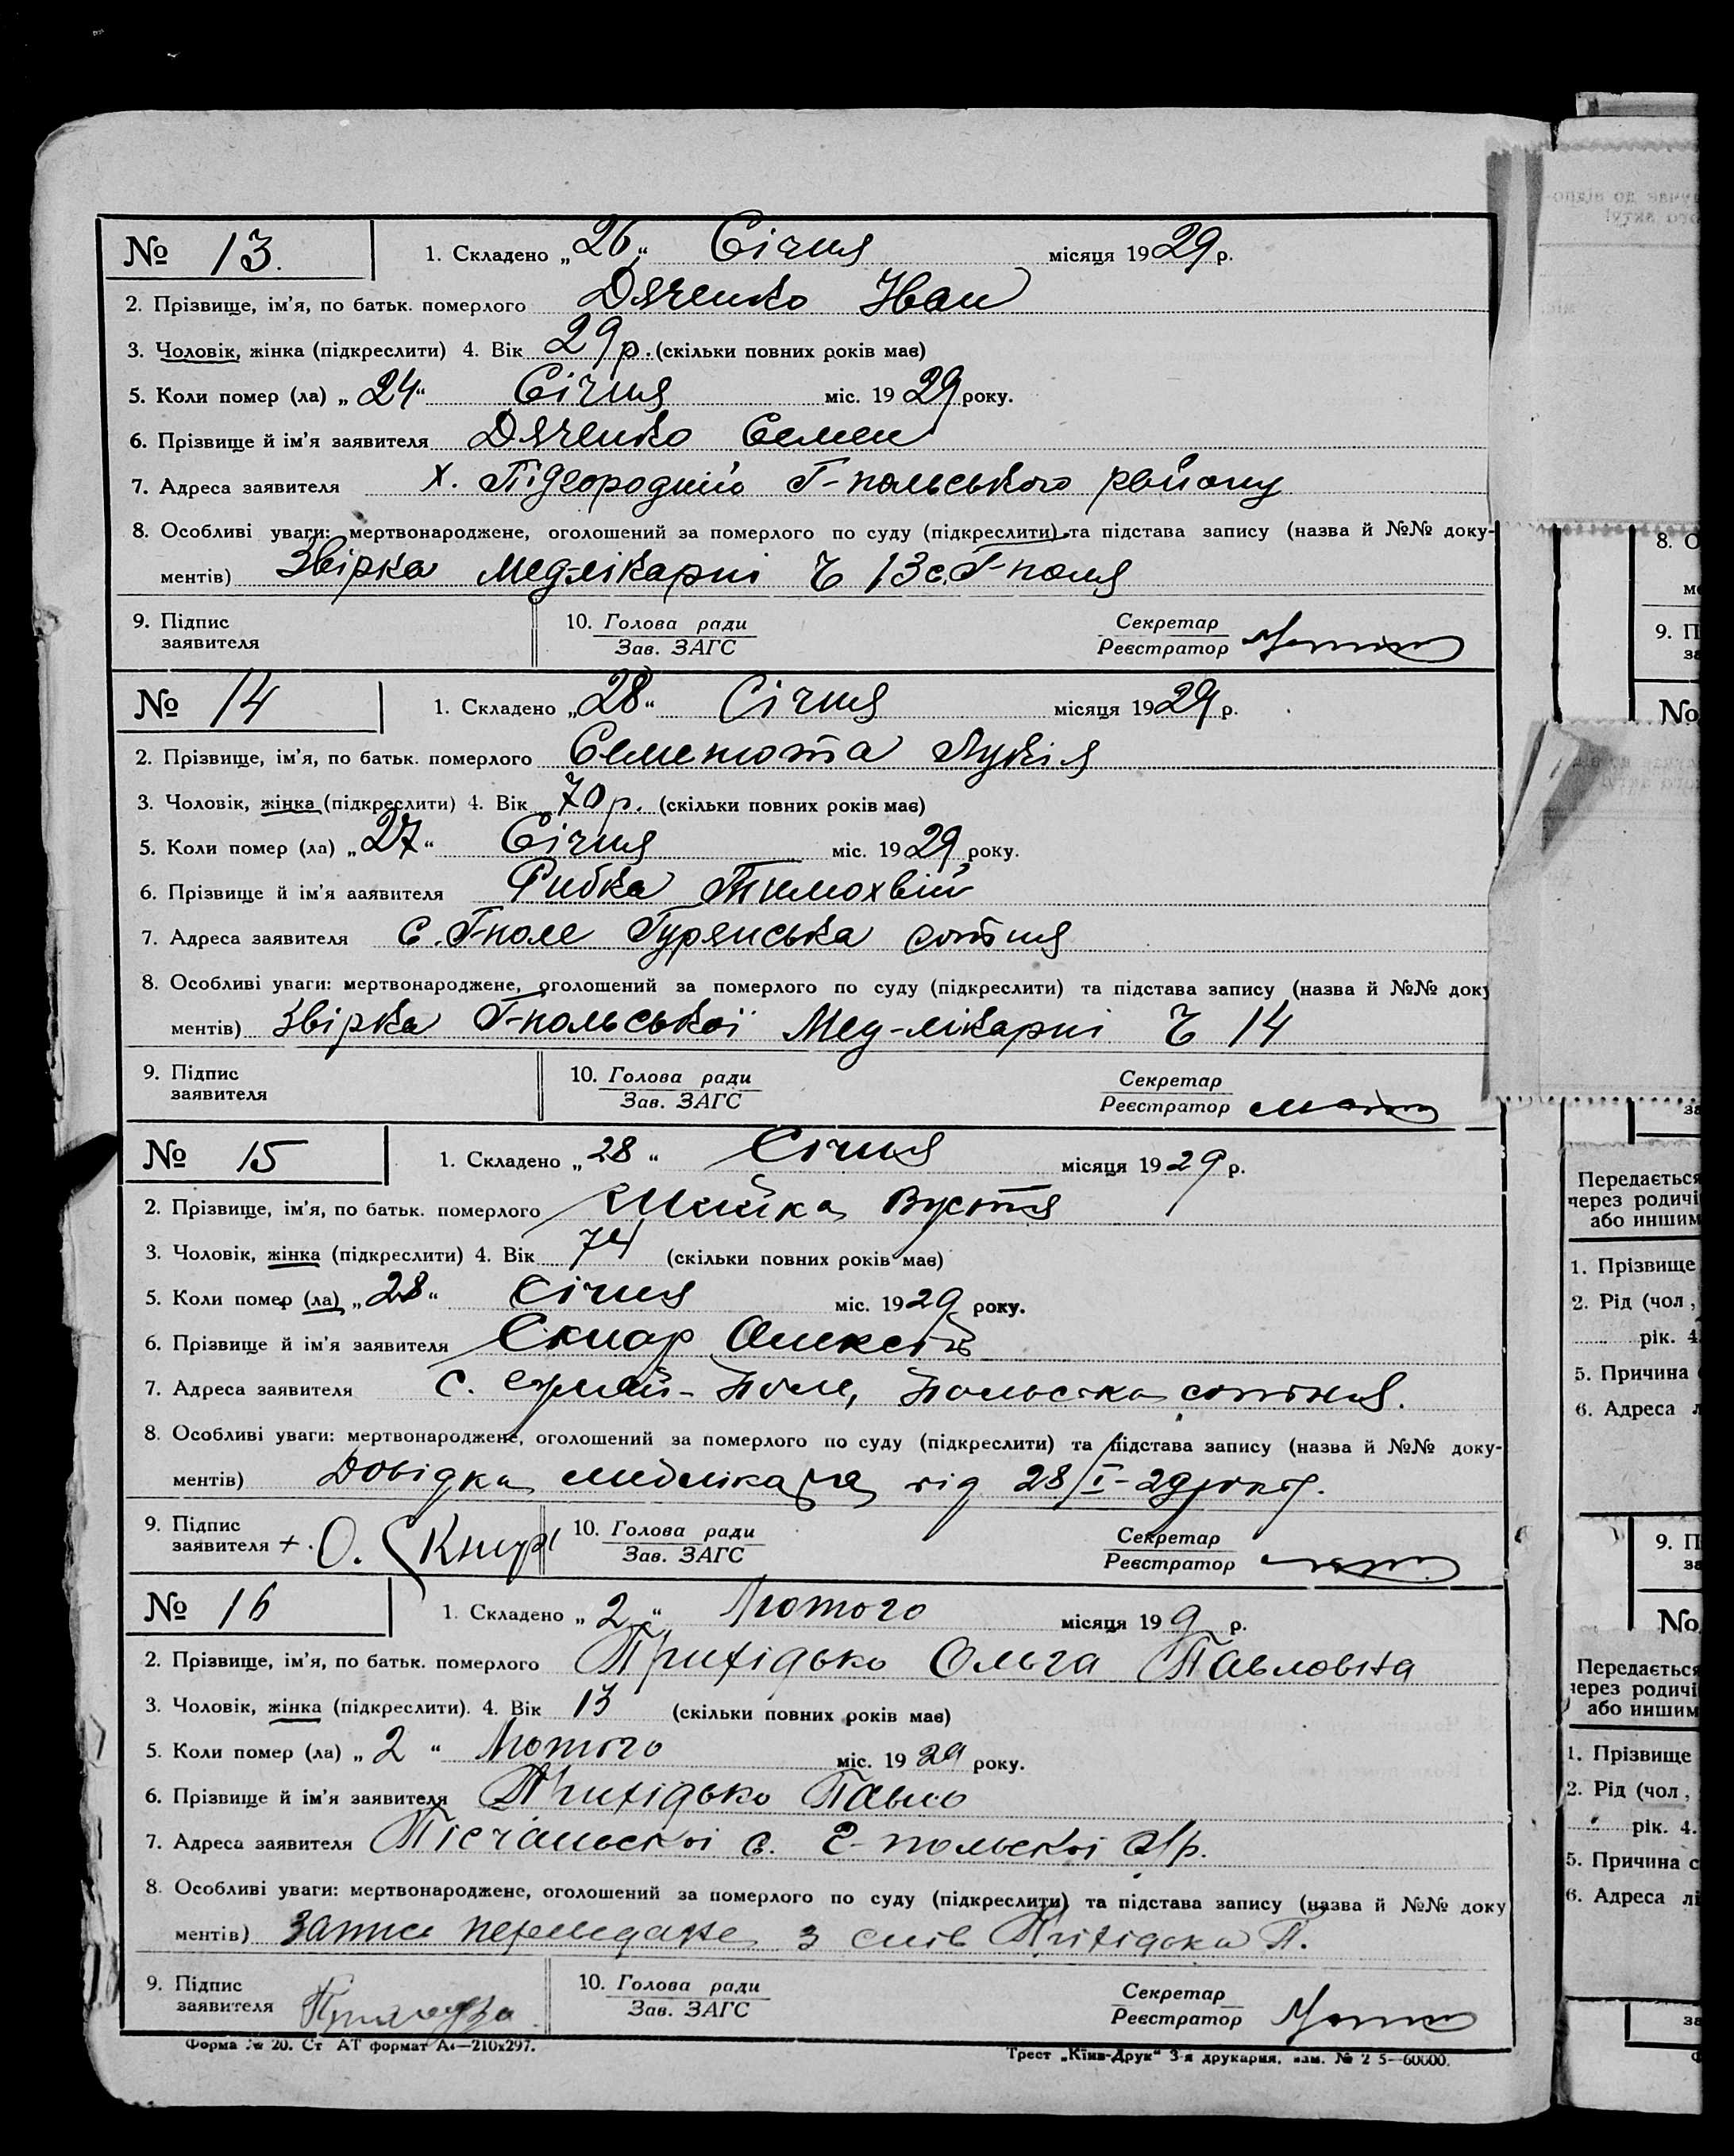 № 13. 1. Складено „26“ Січня місяця 1929 р.
2. Прізвище, ім'я, по батьк. померлого Дяченко Іван
3. Чоловік, жінка (підкреслити) 4. Вік 29 р. (скільки повних років має)
5. Коли помер (ла) „24“ Січня міс. 1929 року.
6. Прізвище й ім'я заявителя Дяченко Семен
7. Адреса заявителя х. Підгородній Г-польського району
8. Особливі уваги: мертвонароджене, оголошений за померлого по суду (підкреслити) та підстава запису (назва й №№ доку-
ментів) Звірка Мед-лікарні Ч 13 с. Г-поля
9. Підпис заявителя 10. Голова ради Секретар
Зав. ЗАГС Реєстратор
№ 14 1. Складено „28“ Січня місяця 1929 р.
2. Прізвище, ім'я, по батьк. померлого Семенюта Лукія
3. Чоловік, жінка (підкреслити) 4. Вік 70 р. (скільки повних років має)
5. Коли помер (ла) „27“ Січня міс. 1929 року.
6. Прізвище й ім'я аявителя Рибка Тимохвій
7. Адреса заявителя с. Г-поле Гурянська сотня
8. Особливі уваги: мертвонароджене, оголошений за померлого по суду (підкреслити) та підстава запису (назва й №№ доку
ментів) Звірка Г-польської Мед-лікарні Ч 14
9. Підпис заявителя 10. Голова ради Секретар
Зав. ЗАГС Реєстратор
№ 15 1. Складено „28“ Січня місяця 1929 р.
2. Прізвище, ім'я, по батьк. померлого Шийка Вустя
3. Чоловік, жінка (підкреслити) 4. Вік 74 (скільки повних років має)
5. Коли помер (ла) „28“ Січня міс. 1929 року.
6. Прізвище й ім'я заявителя Скляр Олексій
7. Адреса заявителя с. Гуляй-Поле, Польська сотня.
8. Особливі уваги: мертвонароджене, оголошений за померлого по суду (підкреслити) та підстава запису (назва й №№ доку-
ментів) Довідка медлікаря від 28/I-29 року.
9. Підпис заявителя + О. Скляр 10. Голова ради Секретар
Зав. ЗАГС Реєстратор
№ 16 1. Складено „2“ Лютого місяця 199 р.
2. Прізвище, ім'я, по батьк. померлого Прихідько Ольга Павловна
3. Чоловік, жінка (підкреслити). 4. Вік 13 (скільки повних років має)
5. Коли помер (ла) „2“ Лютого міс. 1929 року.
6. Прізвище й ім'я заявителя Прихідько Павло
7. Адреса заявителя с. Г-польскої
8. Особливі уваги: мертвонароджене, оголошений за померлого по суду (підкреслити) та підстава запису (назва й №№ доку
ментів) Запис з слів Прихідька П.
9. Підпис заявителя 10. Голова ради Секретар
Зав. ЗАГС Реєстратор
Форма № 20. Ст АТ формат А4—210х297. Трест „Київ-Друк“ 3-я друкарня, зам. № 2 5—60000.
8. О
9. П
№
Передається
через родичі
або иншим
1. Прізвище
2. Рід (чол,
рік. 4.
5. Причина
6. Адреса л
9. П
№
Передається
через родичі
або иншим
1. Прізвище
2. Рід (чол,
рік. 4.
5. Причина с
6. Адреса лі